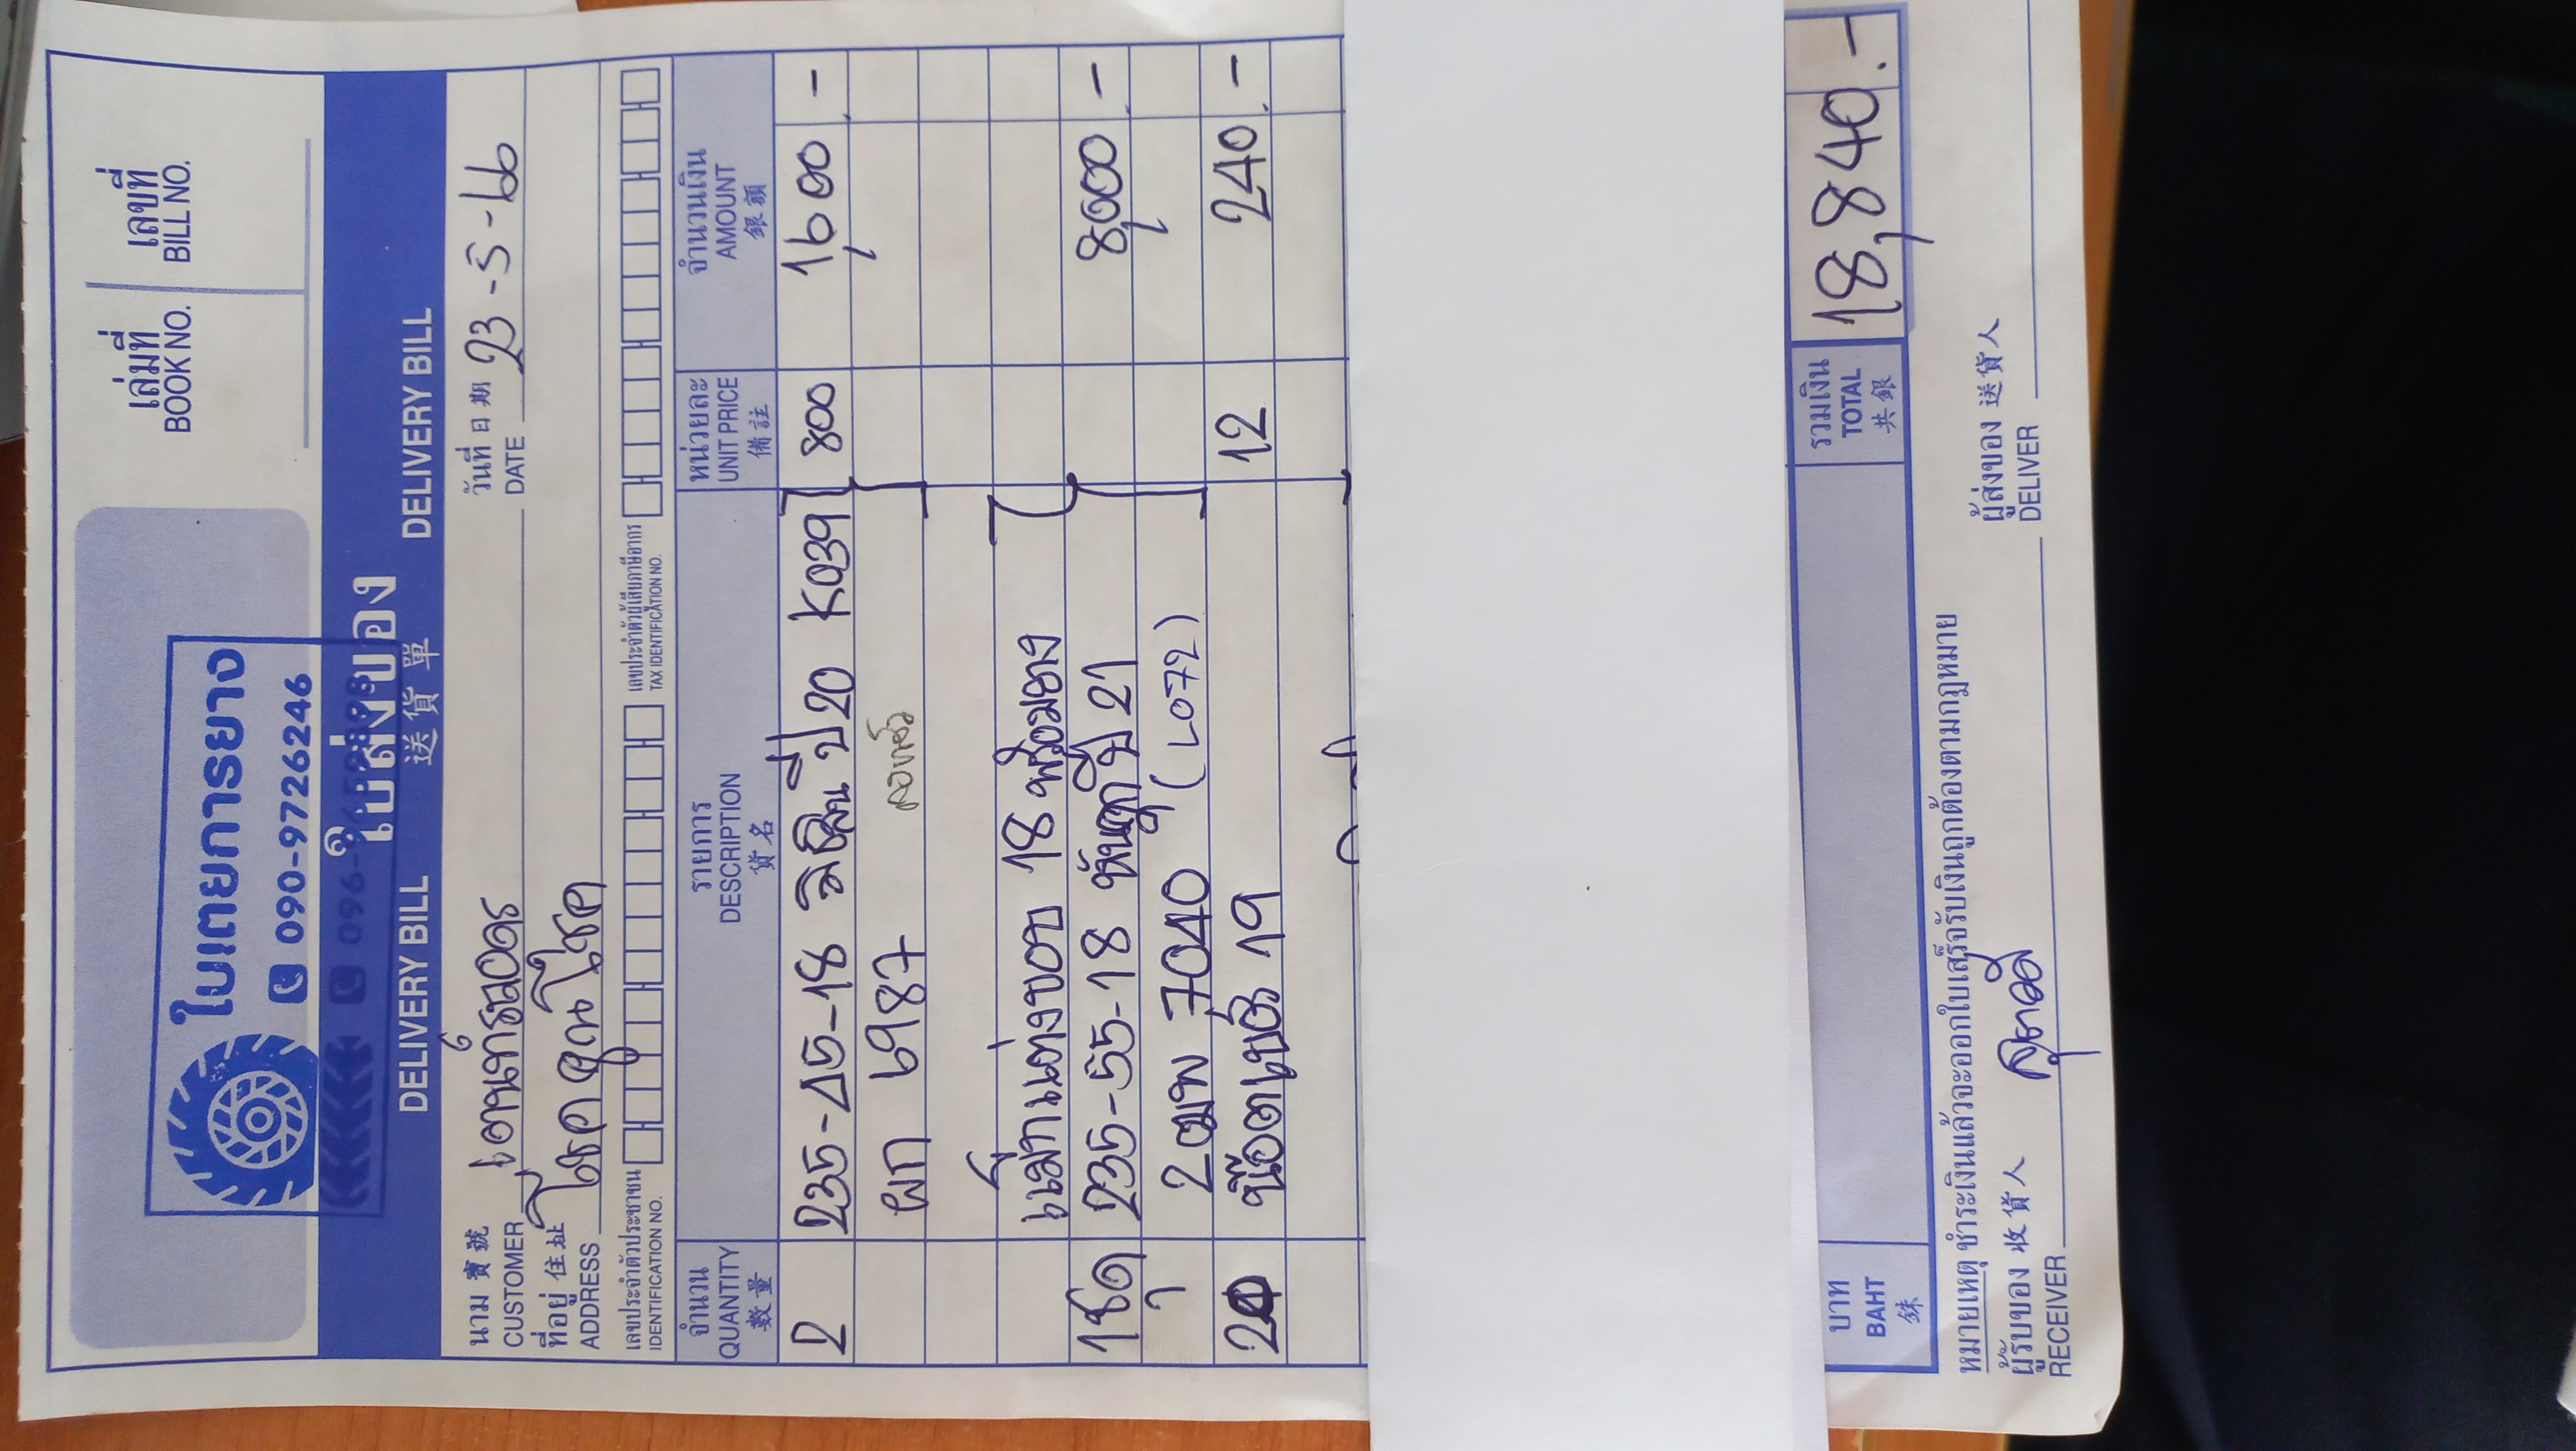 เล่มที่ เลขที่
BOOK NO. BILL NO.
ใบเตยการยาง
090-9726246
ใบส่งของ
DELIVERY BILL 送貨單 DELIVERY BILL
นาม 寶號
CUSTOMER
วันที่ 日期 23-5-66
DATE
ที่อยู่ 住址 โชคคูณโชค
ADDRESS
เลขประจำตัวประชาชน เลขประจำตัวผู้เสียภาษีอากร
IDENTIFICATION NO. TAX IDENTIFICATION NO.
จำนวน รายการ หน่วยละ จำนวนเงิน
QUANTITY DESCRIPTION UNIT PRICE AMOUNT
數量 貨名 備註 銀額
2 235-45-18 มิชลิน ปี 20 800 1,600.-
ผก 6987
แม็กแต่งขอบ 18 พร้อมยาง
1ชุด 235-55-18 ปี 21 8,000.-
2ฒพ 7040 (L072)
20 น๊อตเบอร์ 19 12 240.-
บาท รวมเงิน 18,840.-
BAHT TOTAL
銖 共銀
หมายเหตุ ชำระเงินแล้วจะออกใบเสร็จรับเงินถูกต้องตามกฎหมาย
ผู้รับของ 收貨人 ผู้ส่งของ 送貨人
RECEIVER DELIVER